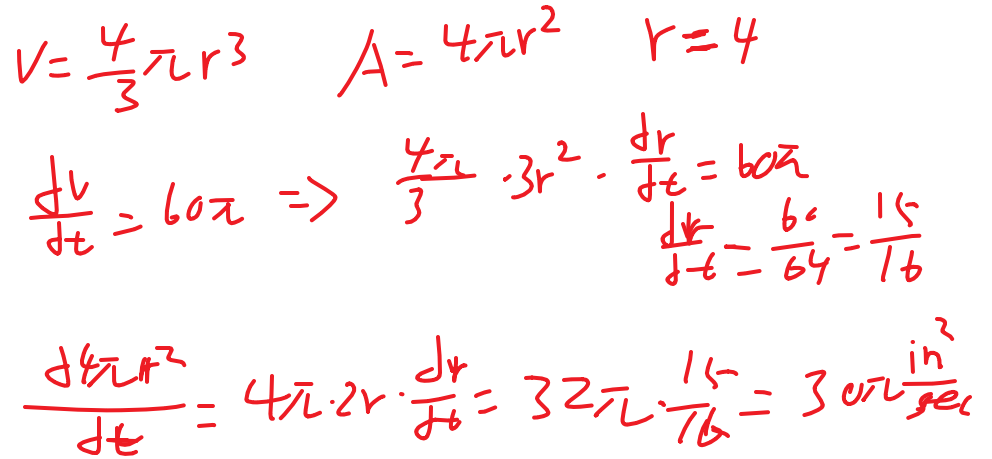 V = 4/3 πr³ A = 4πr² r = 4
dV/dt = 60π => 4π/3 · 3r² · dr/dt = 60π
dr/dt = 60/64 = 15/16
d4πr²/dt = 4π · 2r · dr/dt = 32π · 15/16 = 30π in²/sec